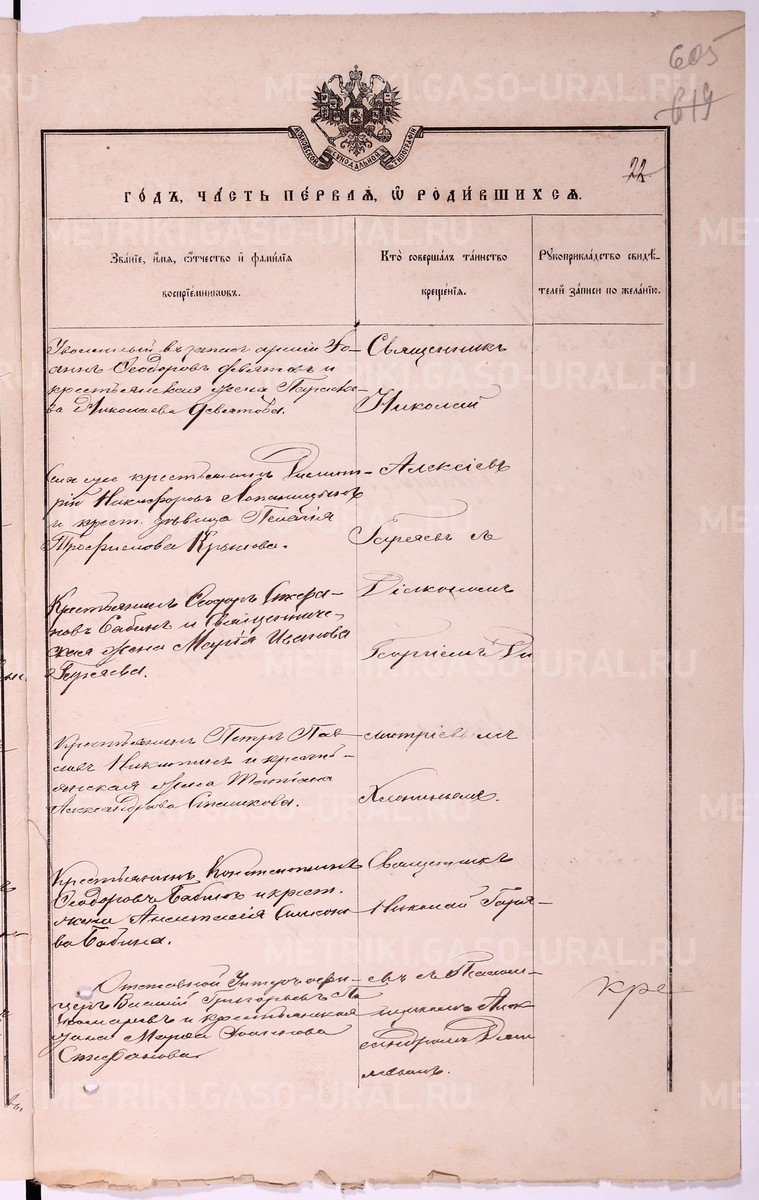 605
619
МОСКОВСКОЙ СѴНОДАЛЬНОЙ ТИПОГРАФІИ
22
ГО́ДЪ, ЧА́СТЬ ПЕ́РВАѦ, Ѡ҆ РОДИ́ВШИХСѦ.
Зва́нїе, и҆́мѧ, ѻ҆́тчество и҆ фами́лїѧ
воспрїе́мникѡвъ.
Кто̀ соверша́лъ та́инство
креще́нїѧ.
Рꙋкоприкла́дство свидѣ́-
телей за́писи по жела́нїю.
Уволенный въ запас арміи Іо-
аннъ Ѳеодоровъ Девятов и
крестьянская жена Параске-
ва Николаева Девятова.
Священникъ
Николай
крестьянинъ Димит-
рій Никифоровъ
и крест. дѣвица Пелагія
Трофимова
Алексіевъ
Гаряевъ съ
Крестьянинъ Ѳеодоръ Стефа-
новъ Бабинъ и Священниче-
ская жена Марія Иванова
Гаряева.
Діакономъ
Георгіемъ Ди
Крестьянинъ Петръ Пав-
ловъ Никитинъ и кресть-
янская жена Татіана
Александрова
митріевымъ
Хлопинымъ.
Крестьянинъ Константинъ
Ѳеодоровъ Бабинъ и крест.
жена Анастасія Симеоно
ва Бабина.
Священникъ
Николай Гаря
Отставной Унтеръ офи-
церъ Василій Григорьевъ По
номаревъ и крестьянская
жена Марія Іоаннова
Стефанова
евъ съ Псалом-
щикомъ Алек
сандромъ
кре
METRIKI.GASO-URAL.RU